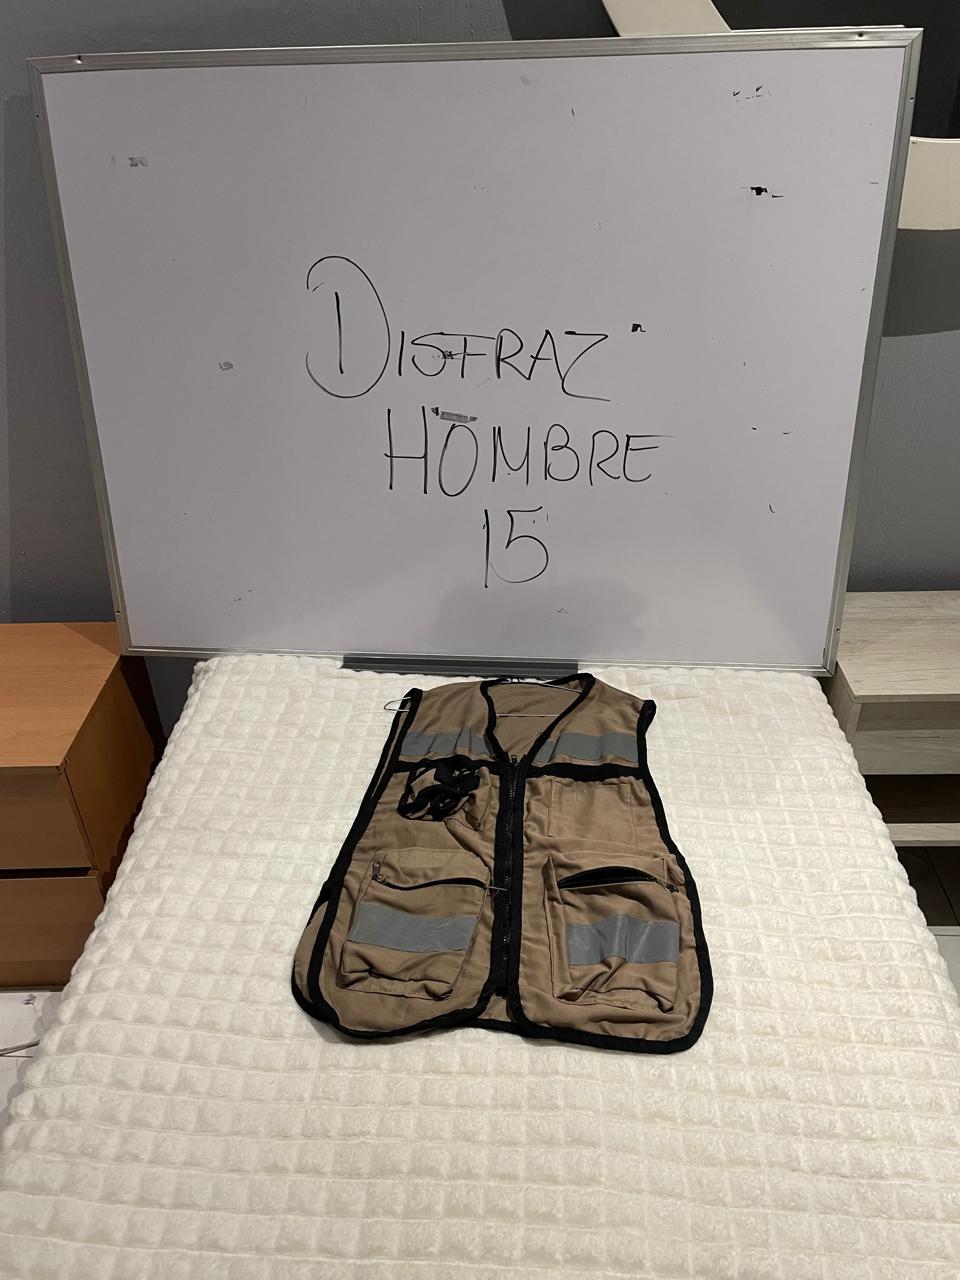 DISFRAZ
HOMBRE
15